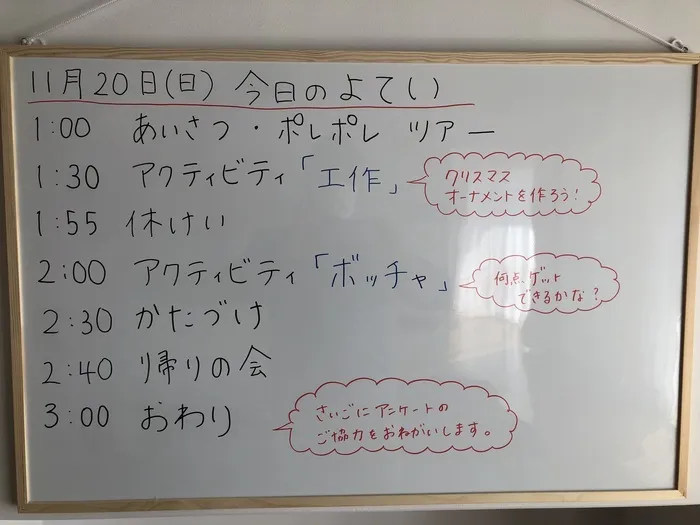 11月20日(日) 今日のよてい
1:00 あいさつ・ポレポレ ツアー
1:30 アクティビティ「工作」
クリスマス
オーナメントを作ろう!
1:55 休けい
2:00 アクティビティ「ボッチャ」
何点ゲット
できるかな?
2:30 かたづけ
2:40 帰りの会
3:00 おわり
さいごにアンケートの
ご協力をおねがいします。